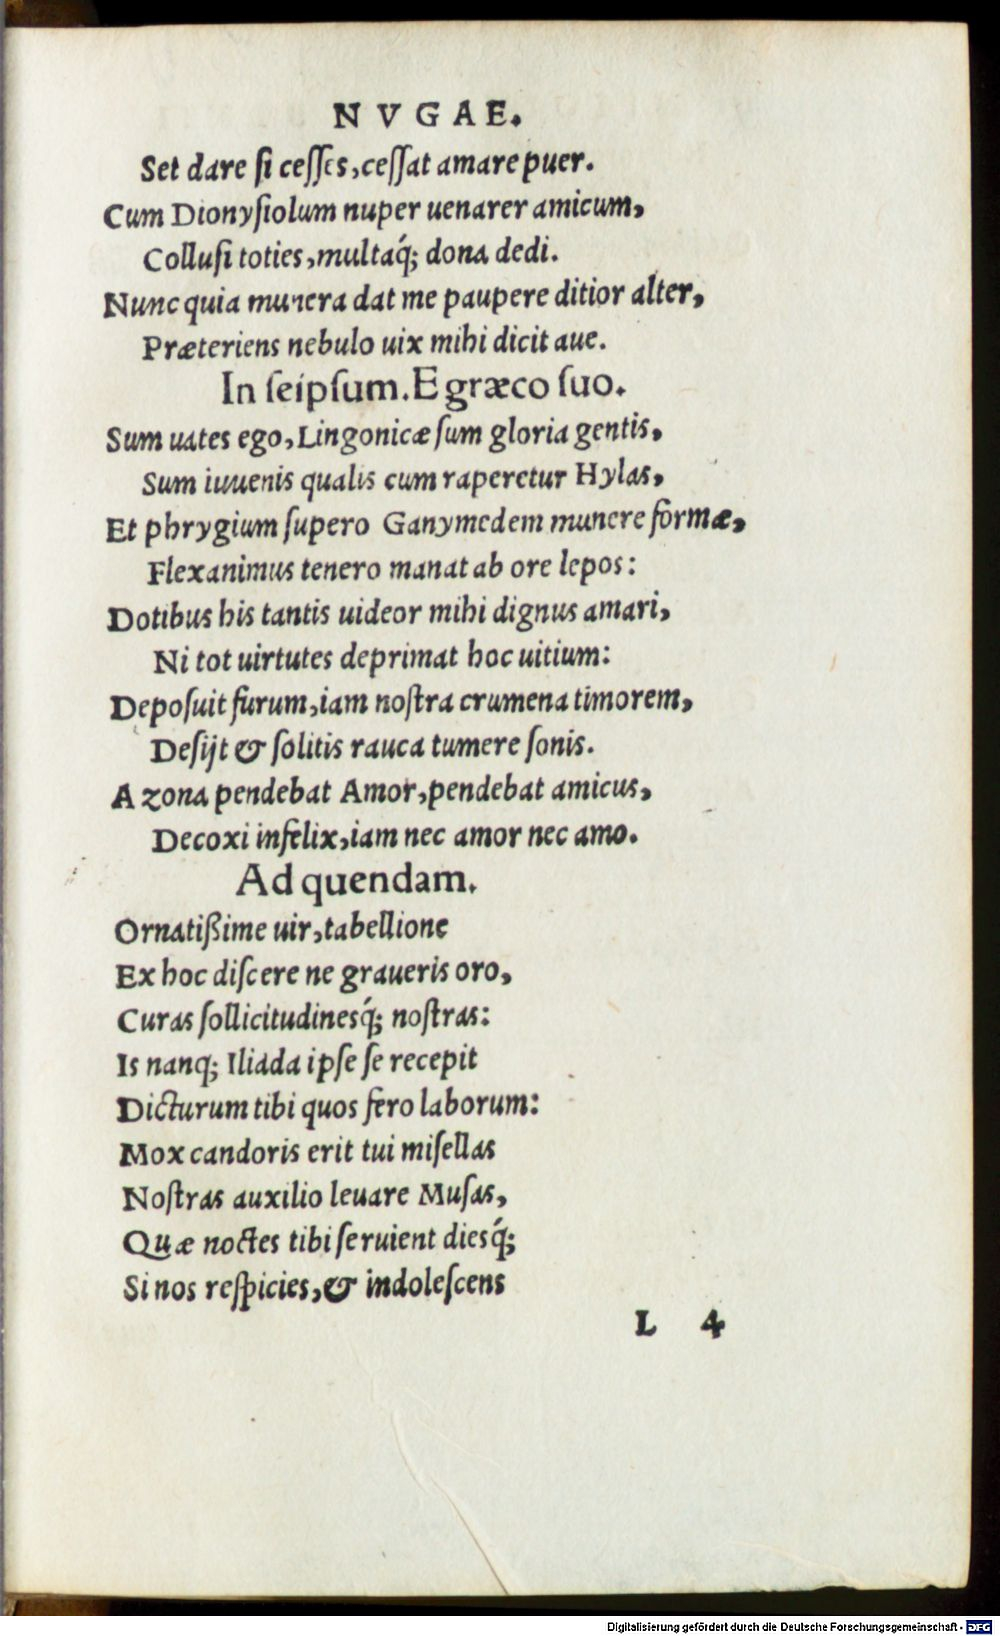 NVGAE.
Set dare ſi ceſſes, ceſſat amare puer.
Cum Dionyſiolum nuper uenarer amicum,
Colluſi toties, multaq́; dona dedi.
Nunc quia munera dat me paupere ditior alter,
Præteriens nebulo uix mihi dicit aue.
In ſeipſum. E græco ſuo.
Sum uates ego, Lingonicæ ſum gloria gentis,
Sum iuuenis qualis cum raperetur Hylas,
Et phrygium ſupero Ganymedem munere formæ,
Flexanimus tenero manat ab ore lepos:
Dotibus his tantis uideor mihi dignus amari,
Ni tot uirtutes deprimat hoc uitium:
Depoſuit furum, iam noſtra crumena timorem,
Deſijt & ſolitis rauca tumere ſonis.
A zona pendebat Amor, pendebat amicus,
Decoxi infelix, iam nec amor nec amo.
Ad quendam.
Ornatißime uir, tabellione
Ex hoc diſcere ne graueris oro,
Curas ſollicitudinesq́; noſtras:
Is nanq; Iliada ipſe ſe recepit
Dicturum tibi quos fero laborum:
Mox candoris erit tui miſellas
Noſtras auxilio leuare Muſas,
Quæ noctes tibi ſeruient diesq́;
Si nos reſpicies, & indoleſcens
L 4
Digitalisierung gefördert durch die Deutsche Forschungsgemeinschaft - DFG